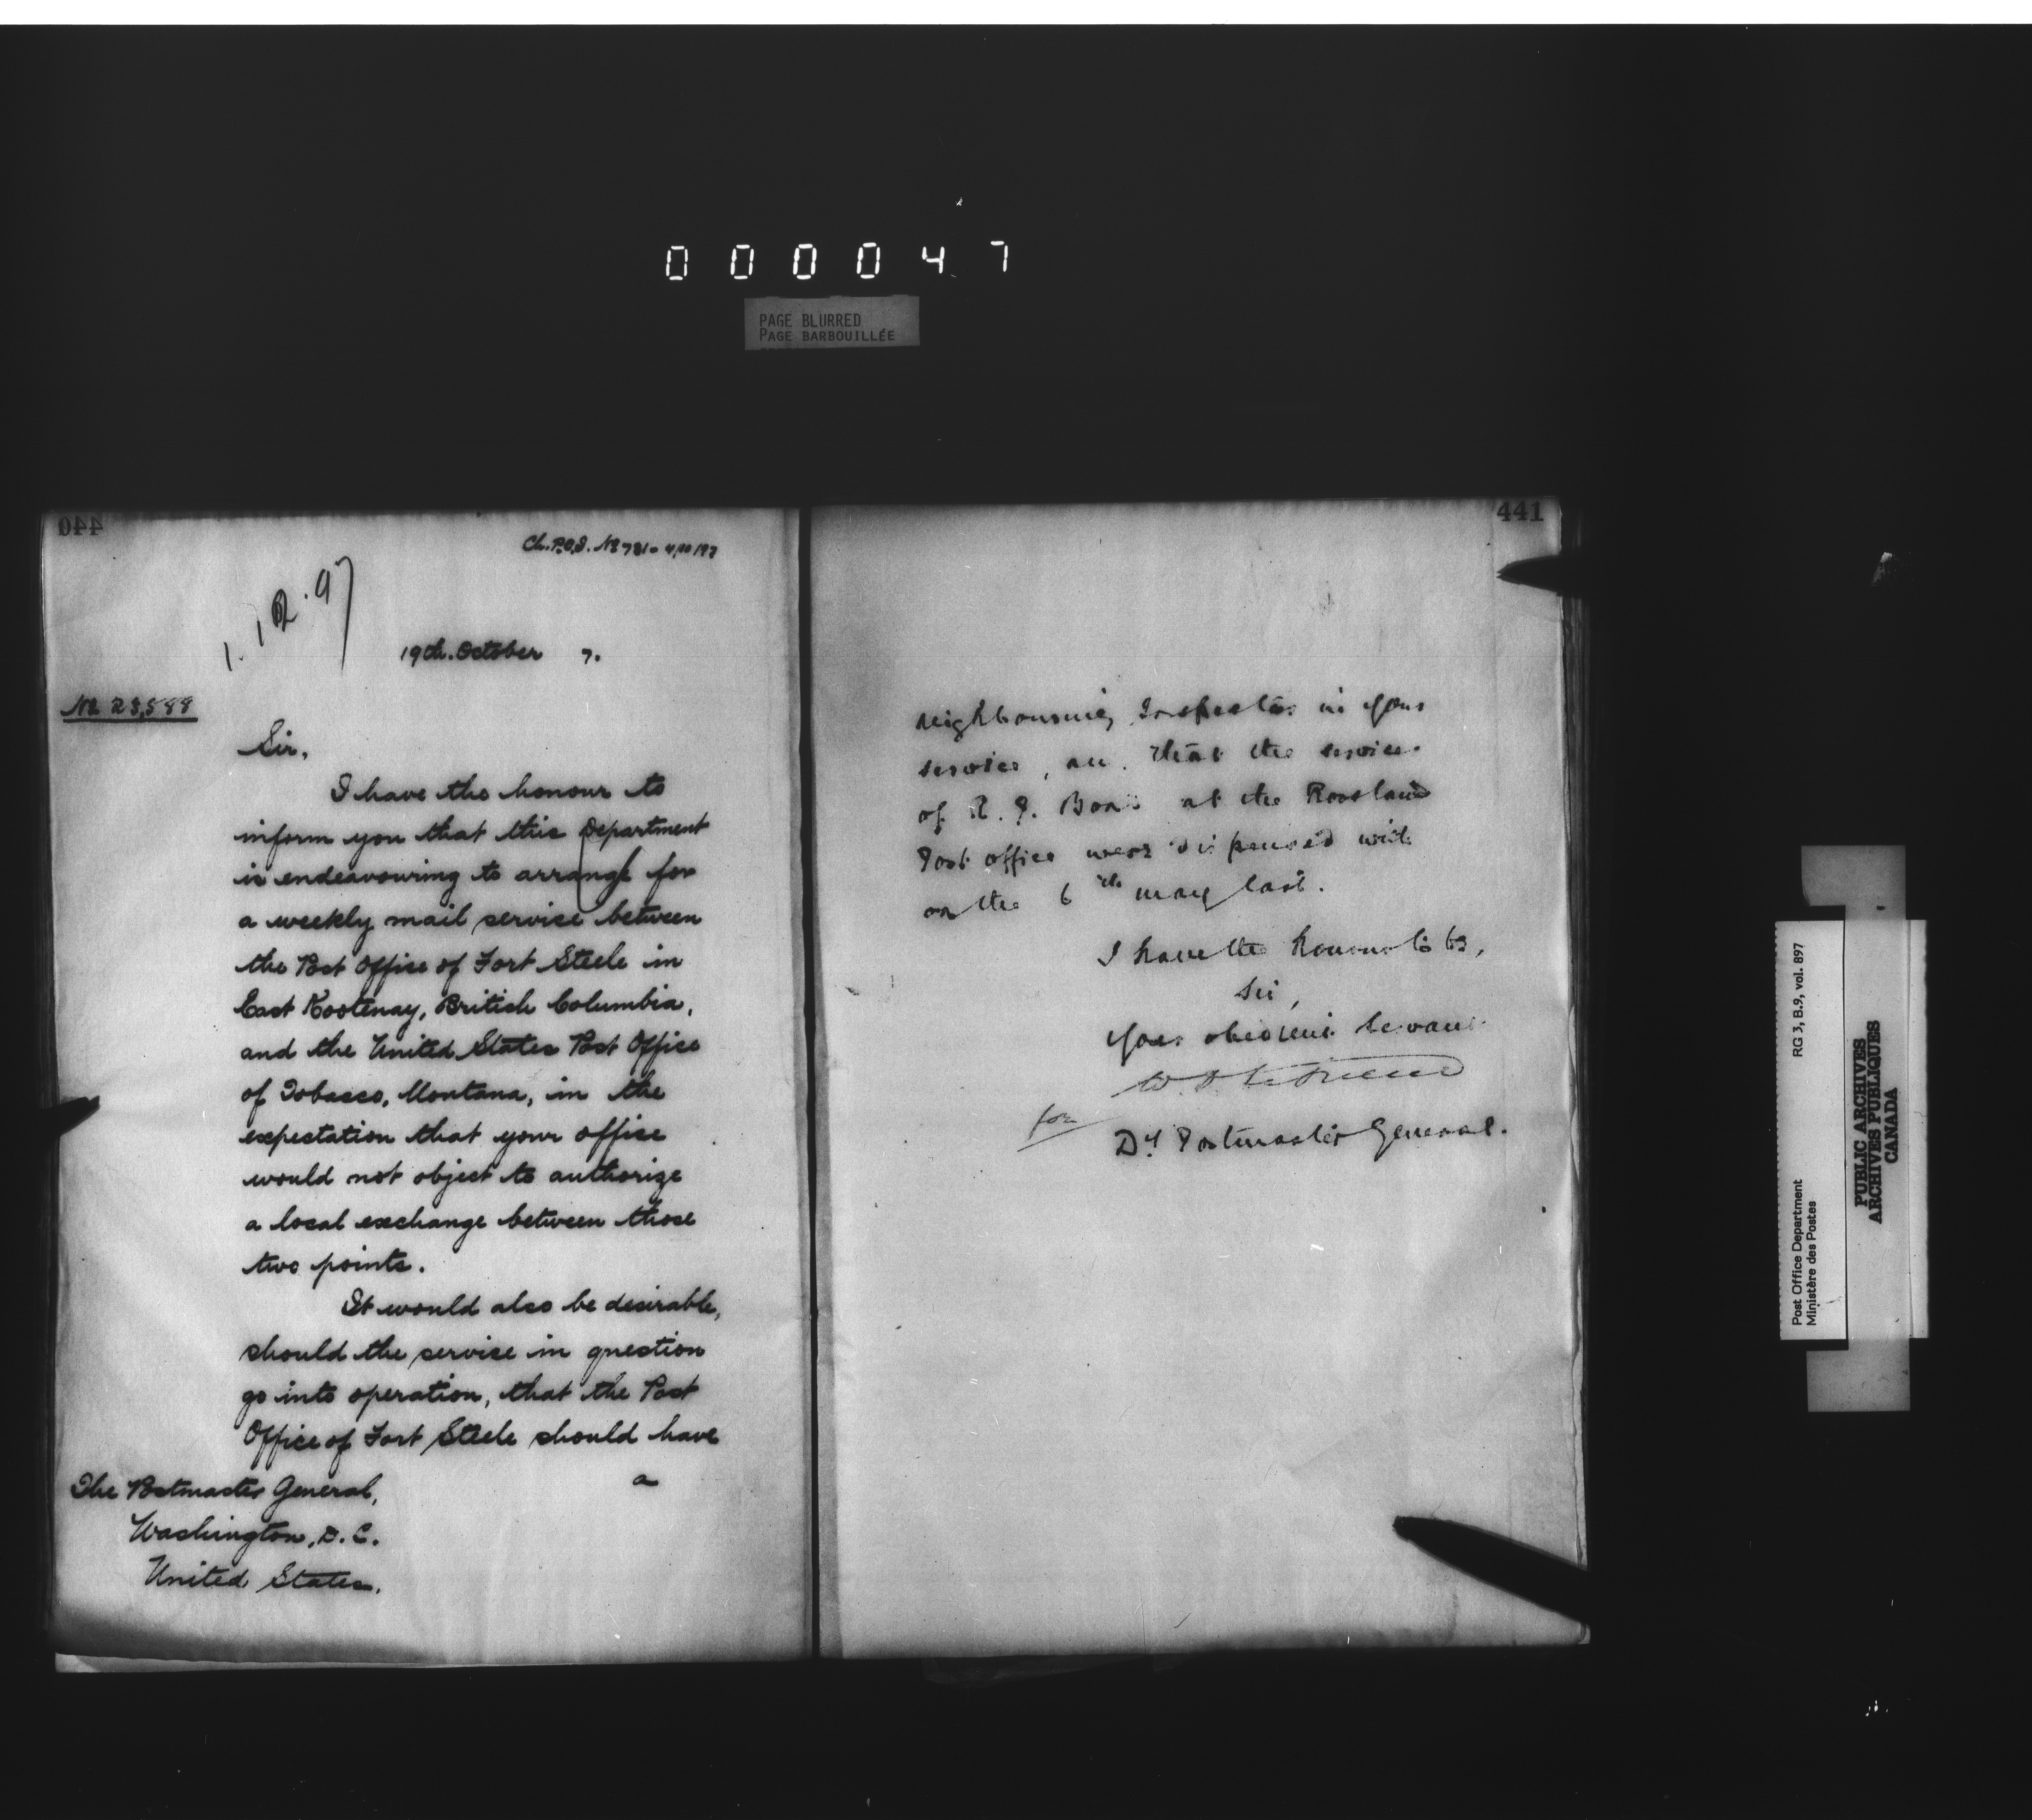 0 0 0 0 4 7
PAGE BLURRED
PAGE BARBOUILLÉE
440
Ch. P.O.I. No 781 - 4/10/97
1.12.97
19th. October 7.
No 23,588
Sir,
I have the honour to
inform you that this Department
is endeavouring to arrange for
a weekly mail service between
the Post Office of Fort Steele in
East Kootenay, British Columbia,
and the United States Post Office
of Tobacco, Montana, in the
expectation that your office
would not object to authorize
a local exchange between those
two points.
It would also be desirable,
should the service in question
go into operation, that the Post
Office of Fort Steele should have
a
The Postmaster General,
Washington, D.C.
United States.
441
neighbouring Inspector in your
service, and that the services
of R. J. at the Rossland
Post office were dispensed with
on the 6th may last.
I have the honour to be,
Sir,
Your obedient Servant
for
Dy Postmaster General.
Post Office Department
Ministère des Postes
RG 3, B.9, vol. 897
PUBLIC ARCHIVES
ARCHIVES PUBLIQUES
CANADA